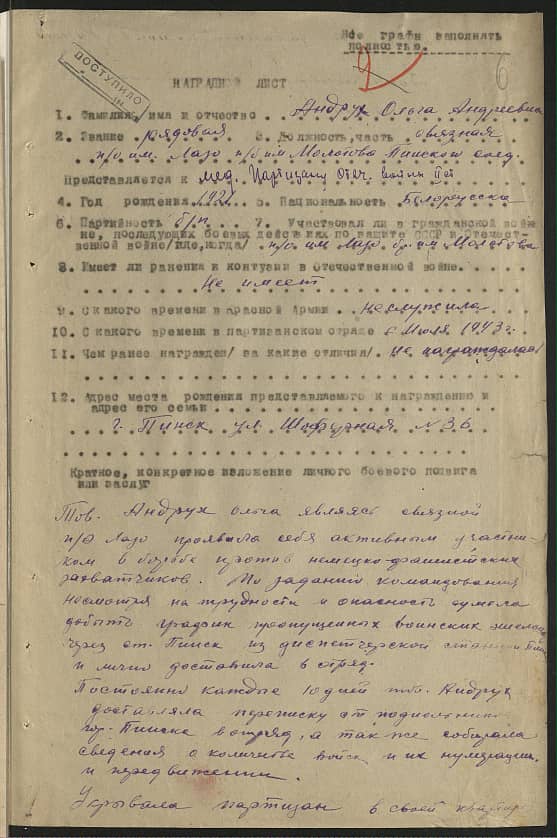 Все графы заполнять
полностью.
2
6
ДОСТУПИЛО
НАГРАДНОЙ ЛИСТ
1. Фамилия, имя и отчество Андрух Ольга Андреевна
2. Звание рядовая 3. Должность, часть связная
п/о им. Лазо п/бр им Молотова Пинского соед.
Представляется к мед. Партизану Отеч. войны
4. Год рождения 5. Национальность Белорусска
6. Партийность б/п 7. Участвовал ли в гражданской войне
не, последующих боевых действиях по защите СССР и Отечест-
венной войне/где, когда/ п/о им Лазо бр. им Молотова
8. Имеет ли ранения и контузии в Отечественной войне.
Не имеет
9. С какого времени в Красной Армии не служила
10. С какого времени в партизанском отряде с Июля 1943 г.
11. Чем ранее награжден/ за какие отличия/. не награждалась
12. Адрес места рождения представляемого к награждению и
адрес его семьи
г. Пинск ул. №36
Краткое, конкретное изложение личного боевого подвига
или заслуг
Тов. Андрух Ольга являясь связной
п/о Лазо проявила себя активным участни-
ком в борьбе против немецко-фашистских
захватчиков. По заданию командования
несмотря на трудности и опасность сумела
добыть график пропущенных воинских эшелонов
через ст. Пинск из диспетчерской станции
и лично доставила в отряд.
Постоянно каждые 10 дней тов. Андрух
доставляла переписку от
гор. Пинска в отряд, а так же собирала
сведения о количестве войск и их нумерации,
и передвижении.
Укрывала партизан в своей квартире